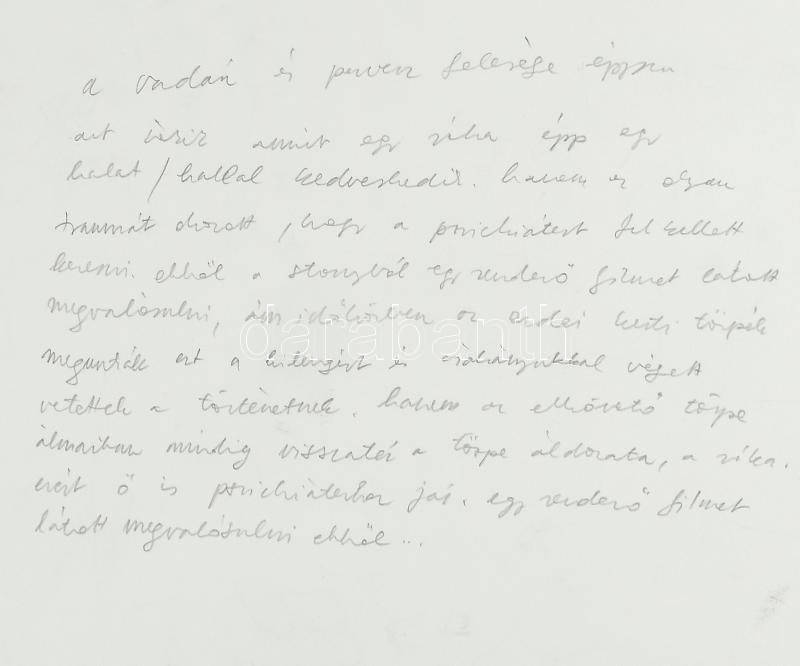 a vadán és perverz felesége éppen
azt nézi amint egy róka épp egy
halat / hallal kedveskedik. hanem ez olyan
traumát okozott, hogy a pszichiátert fel kellett
keresni. ebből a storyból egy rendező filmet látott
megvalósulni, ám időközben az erdei kerti törpék
megunták ezt a kilengést és csákányukkal véget
vetettek a történetnek. hanem az elkövető törpe
álmaiban mindig visszatér a törpe áldozata, a róka.
ezért ő is pszichiáterhez jár. egy rendező filmet
látott megvalósulni ebből...
darabanth